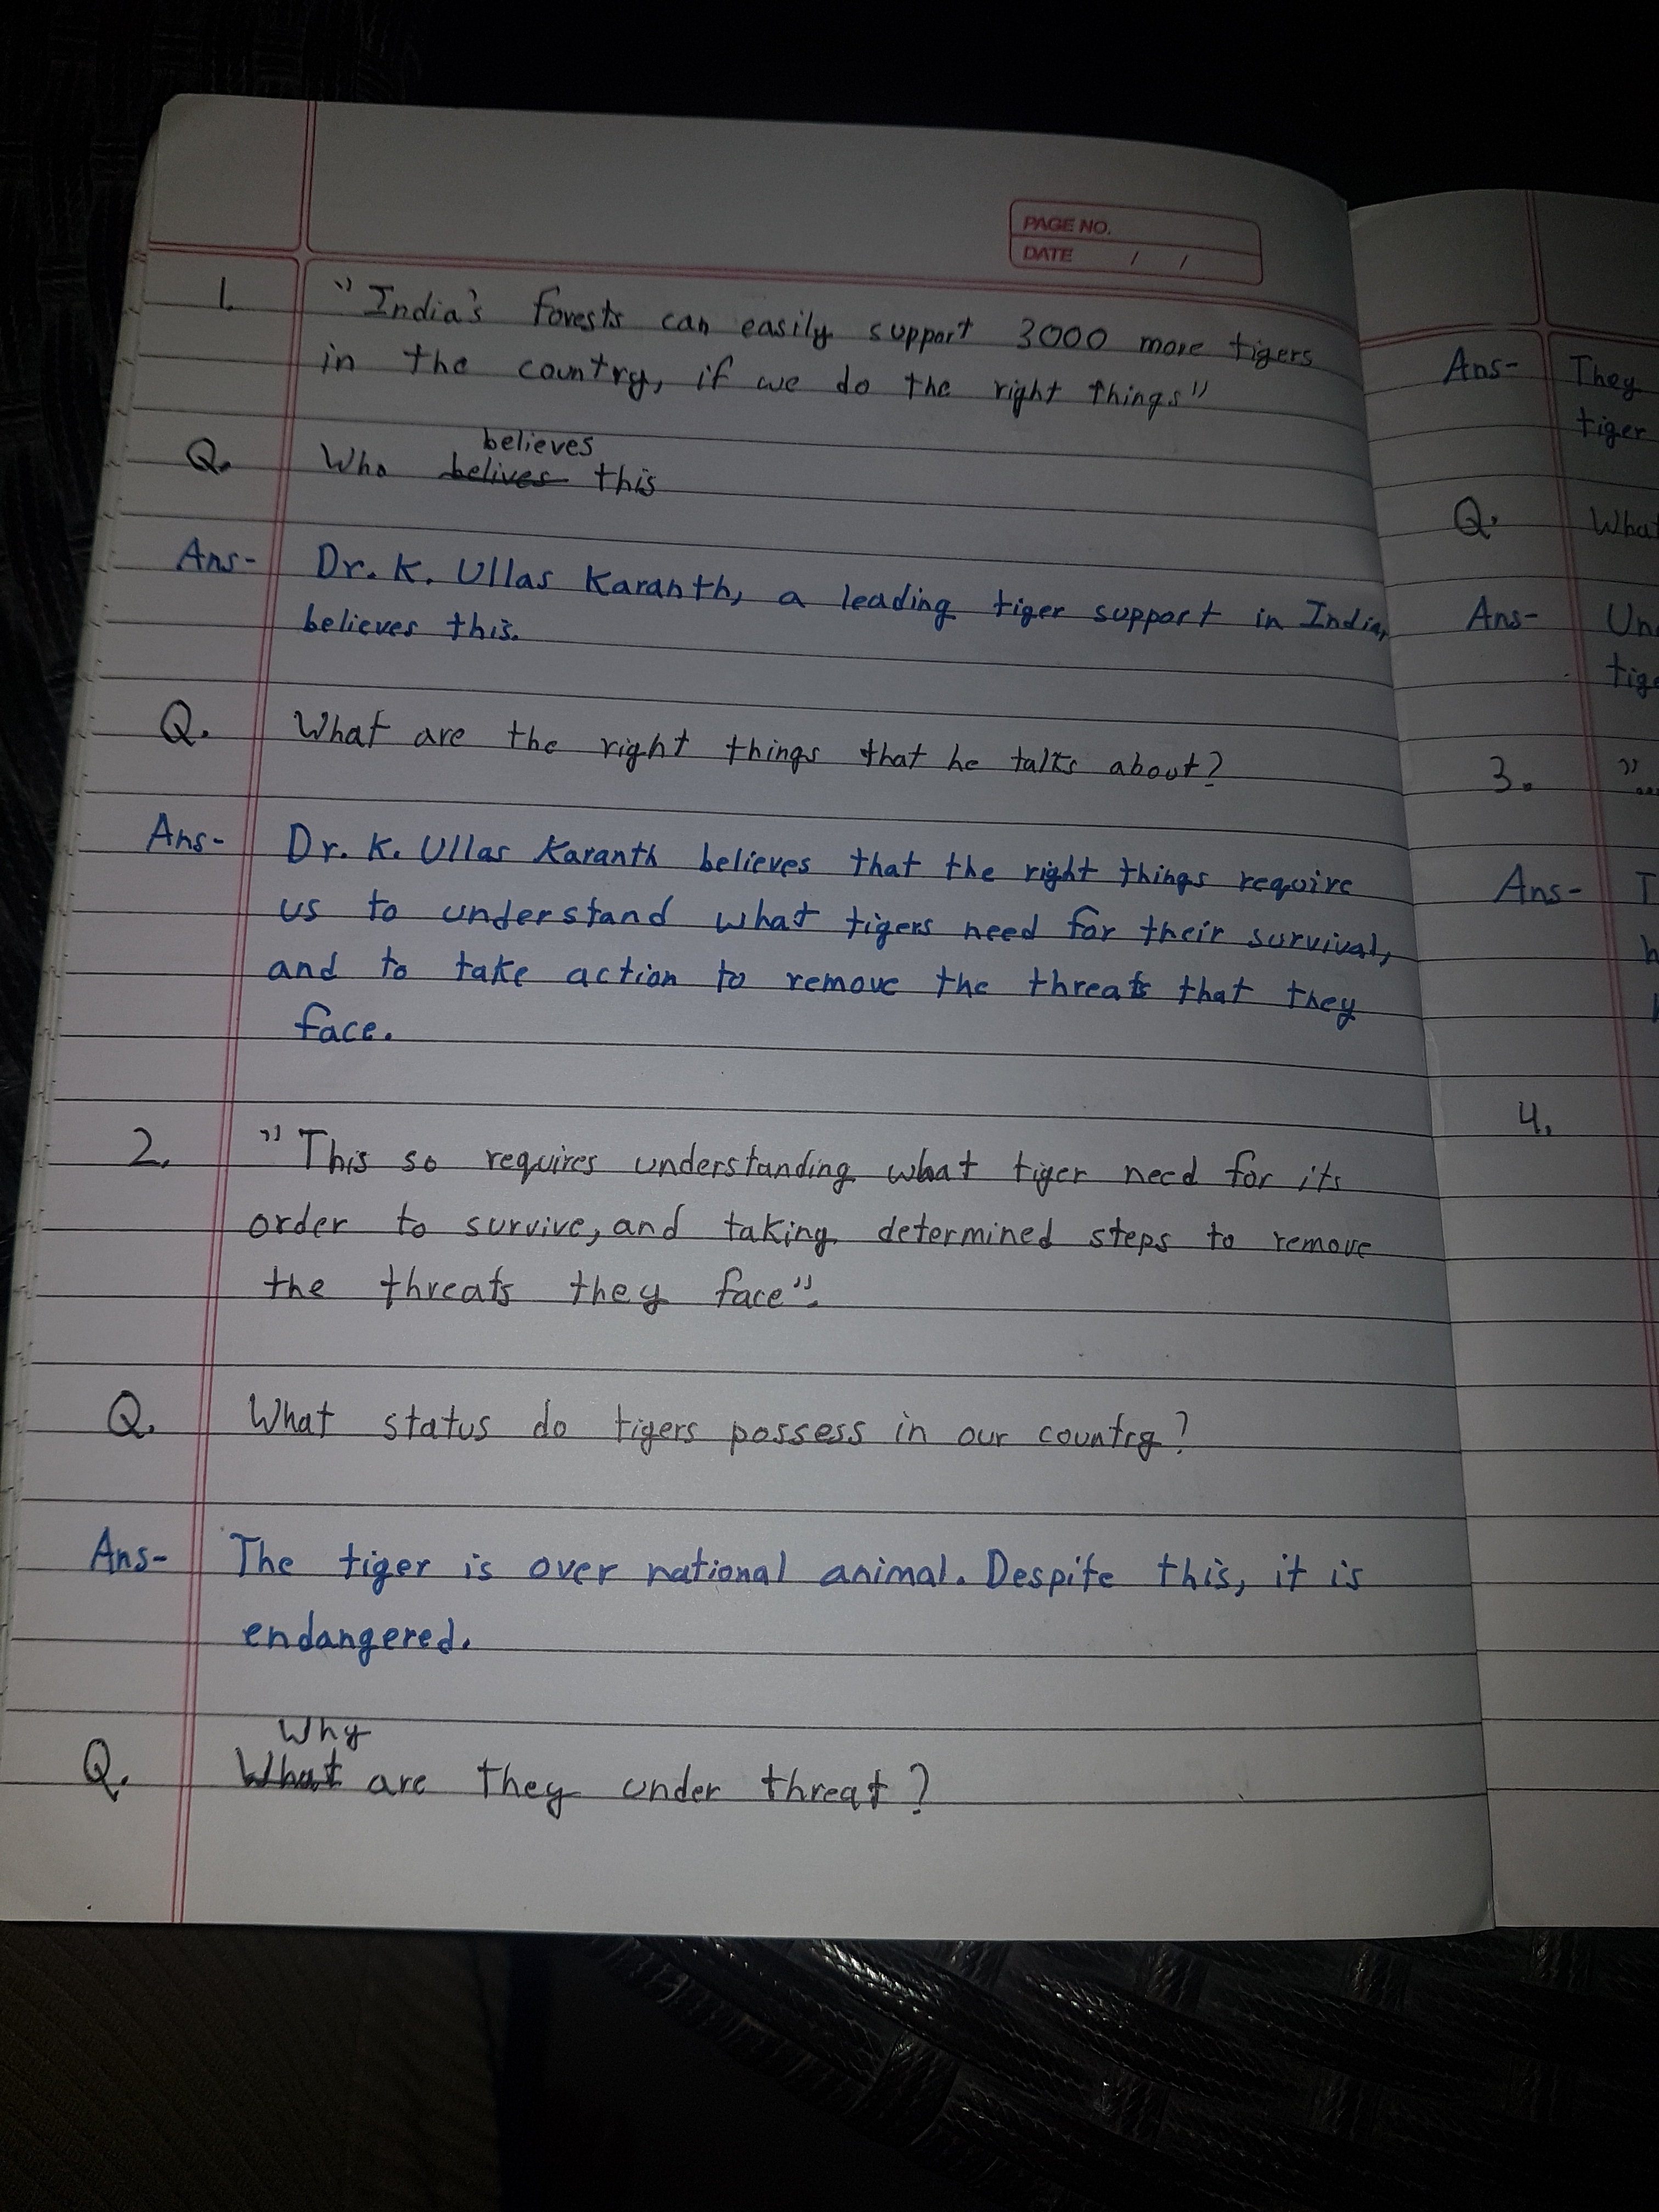 PAGE NO.
DATE / /
1. "India's forests can easily support 3000 more tigers
in the country, if we do the right things"
believes
Q. Who belives this
Ans- Dr. K. Ullas Karanth, a leading tiger support in India,
believes this.
Q. What are the right things that he talks about?
Ans- Dr. K. Ullas Karanth believes that the right things require
us to understand what tigers need for their survival,
and to take action to remove the threats that they
face.
2. "This so requires understanding what tiger need for its
order to survive, and taking determined steps to remove
the threats they face".
Q. What status do tigers possess in our country?
Ans- The tiger is over national animal. Despite this, it is
endangered.
Why
Q. What are they under threat?
Ans- They
tiger
Q.
Ans-
3.
Ans-
4.